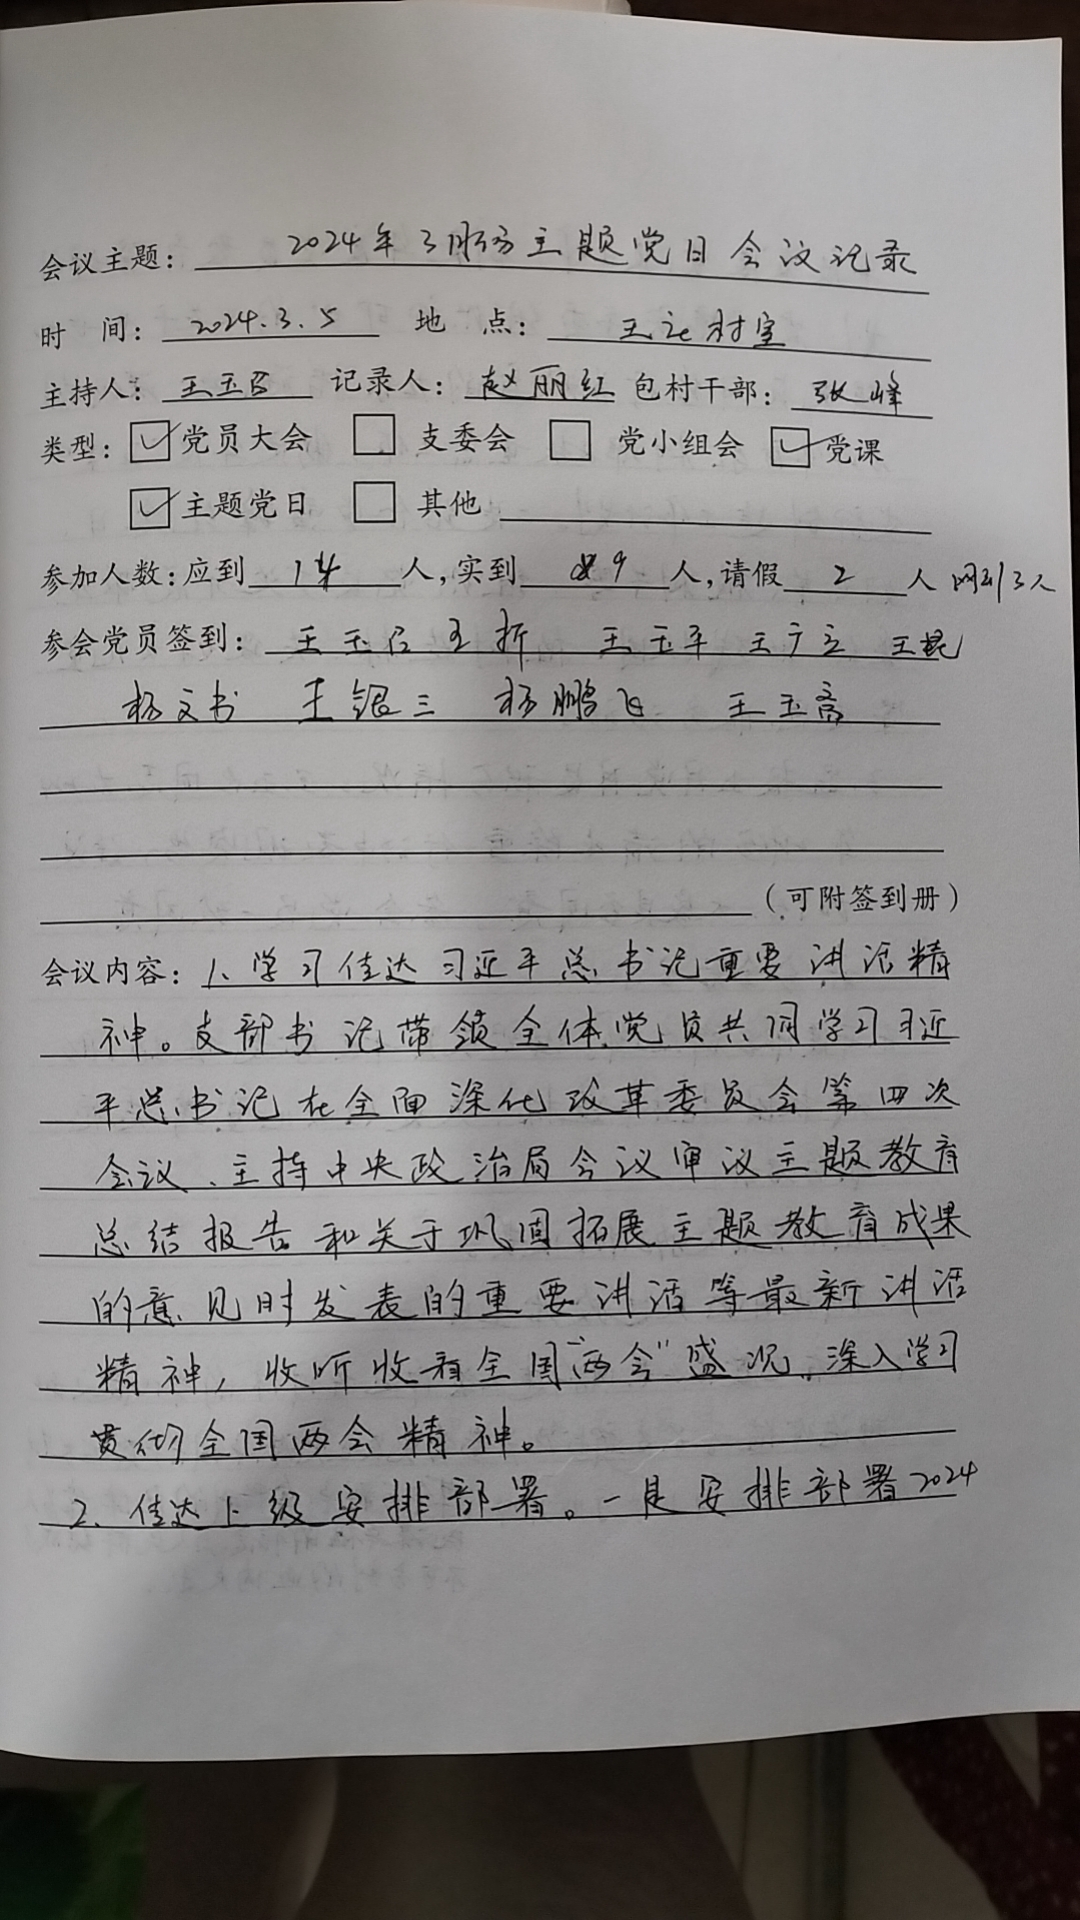 会议主题： 2024年3月份主题党日会议记录
时 间： 2024.3.5 地 点： 王 村室
主持人： 王玉 记录人：赵丽红 包村干部：张峰
类型： 党员大会 支委会 党小组会 党课
主题党日 其他
参加人数：应到 14 人，实到 9 人，请假 2 人 网到3人
参会党员签到： 王玉 王折 王玉平 王广立 王昆
杨文书 王银三 杨鹏飞 王玉斋
（可附签到册）
会议内容：1、学习传达习近平总书记重要讲话精
神。支部书记带领全体党员共同学习习近
平总书记在全面深化改革委员会第四次
会议、主持中央政治局会议审议主题教育
总结报告和关于巩固拓展主题教育成果
的意见时发表的重要讲话等最新讲话
精神，收听收看全国“两会”盛况，深入学习
贯彻全国两会精神。
2、传达上级安排部署。一是安排部署2024